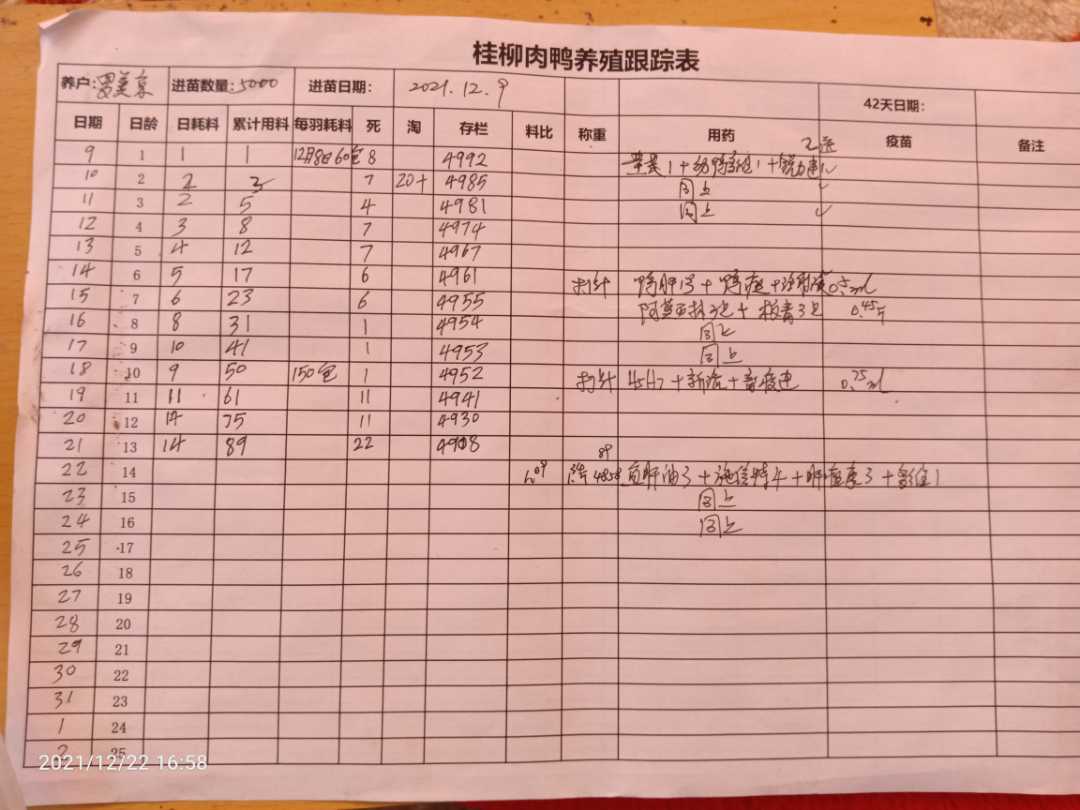 桂柳肉鸭养殖跟踪表
养户: 进苗数量:5000 进苗日期: 2021.12.9 42天日期:
日期 日龄 日耗料 累计用料 每羽耗料 死 淘 存栏 料比 称重 用药 疫苗 备注
9 1 1 1 12月8日60包 8 4992
10 2 2 3 7 20+ 4985 同上
11 3 2 5 4 4981 同上
12 4 3 8 7 4974
13 5 4 12 7 4967
14 6 5 17 6 4961 打针 0.5ml
15 7 6 23 6 4955 0.45斤
16 8 8 31 1 4954 同上
17 9 10 41 1 4953 同上
18 10 9 50 150包 1 4952 打针 H5H7+新流+ 0.75ml
19 11 11 61 11 4941
20 12 14 75 11 4930
21 13 14 89 22 4908
22 14
23 15 同上
24 16 同上
25 17
26 18
27 19
28 20
29 21
30 22
31 23
1 24
2 25
2021/12/22 16:58